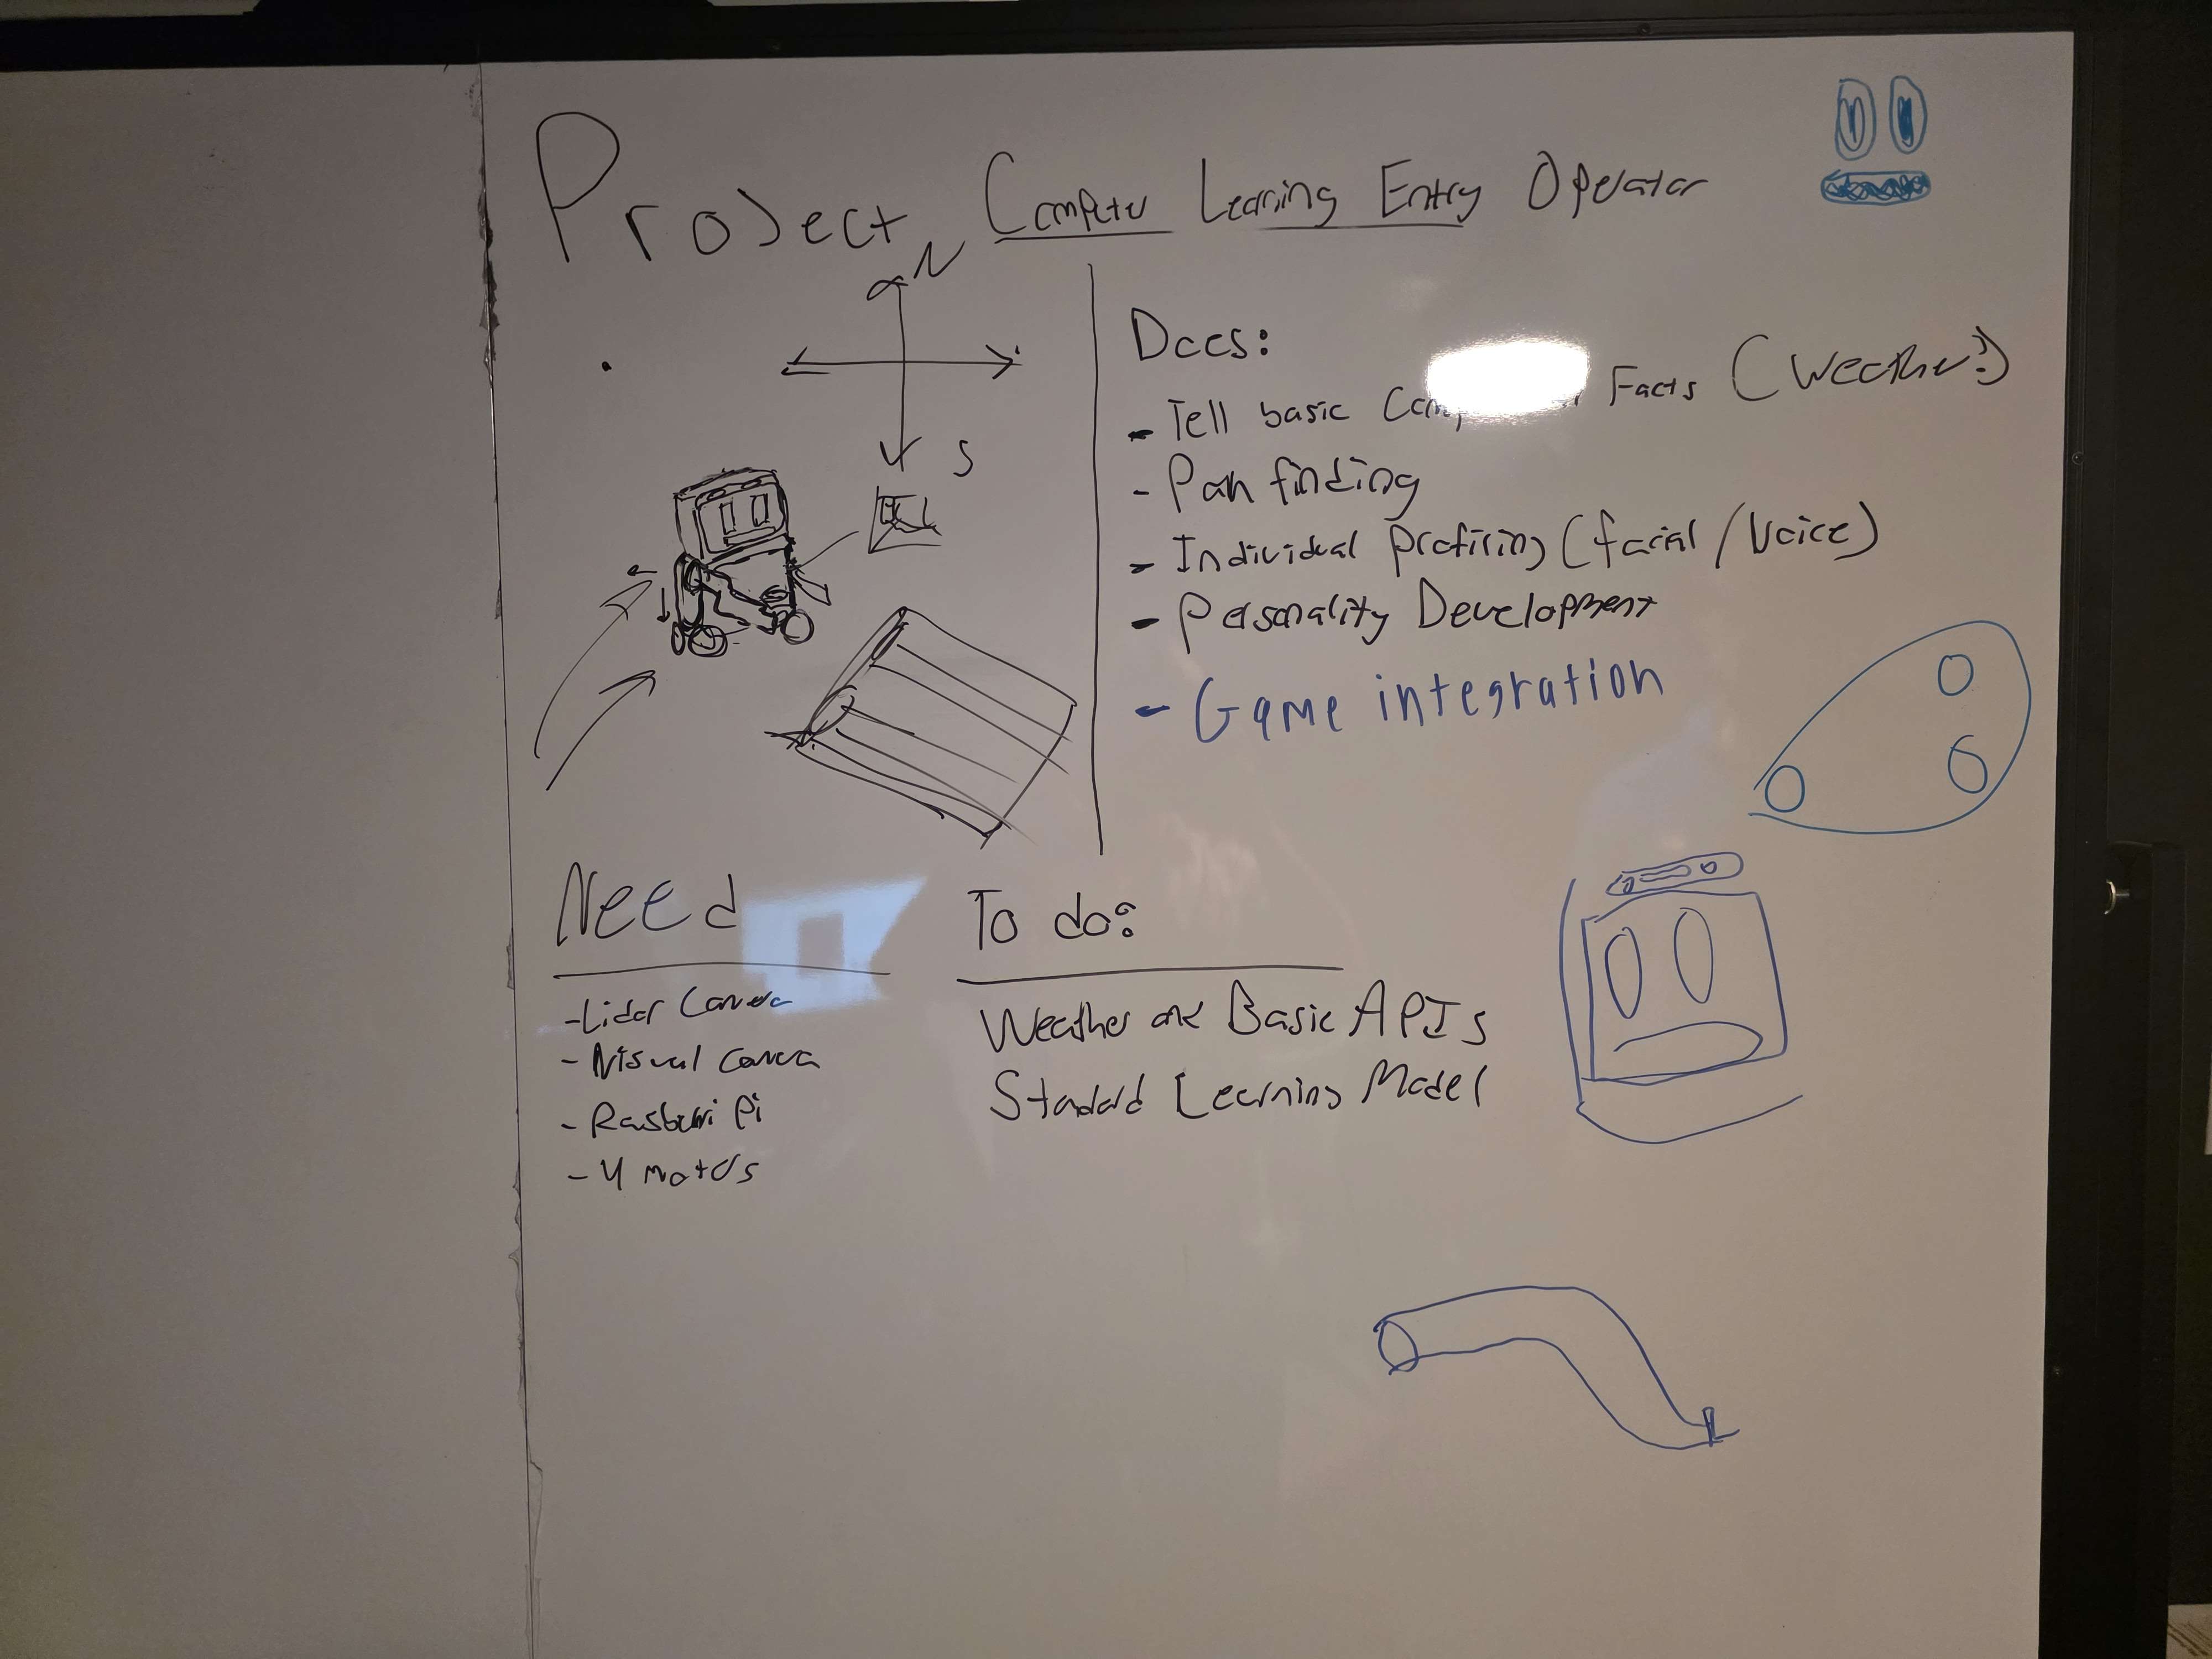 Project Computer Learning Entry Operator
N
S
Does:
- Tell basic Facts (Weather?)
- Path finding
- Individual profiling (facial / Voice)
- Personality Development
- Game integration
Need
- Lidar Camera
- Visual Camera
- Rasburi Pi
- 4 motors
To do:
Weather and Basic APIs
Standard Learning Model